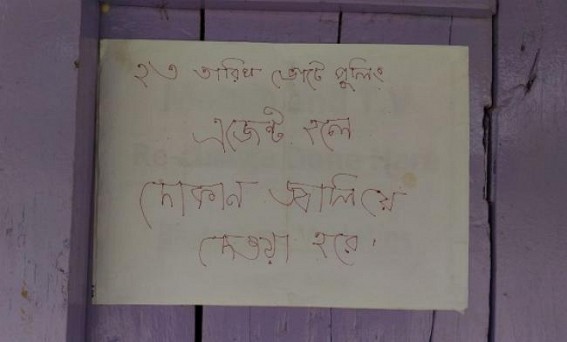 ২৩ তারিখ ভোটে পুলিং
এজেন্ট হলে
দোকান জ্বালিয়ে
দেওয়া হবে।